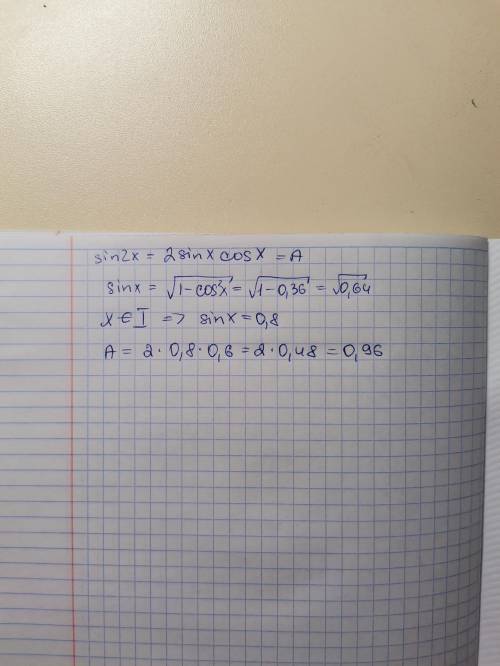 sin2x = 2sinx cosx = A
sinx = √(1-cos²x) = √(1-0,36) = √0,64
x ∈ I => sinx = 0,8
A = 2·0,8·0,6 = 2·0,48 = 0,96